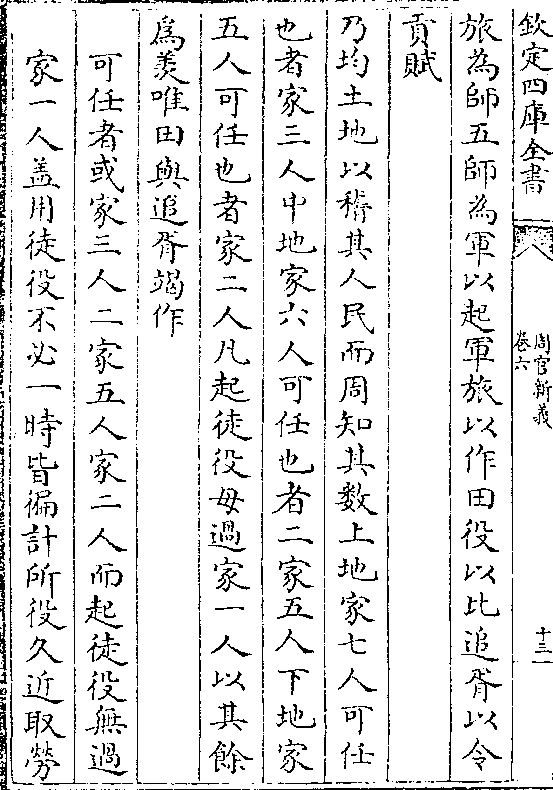 欽定四庫全書
周官新義
卷六
十三
旅為師五師為軍以起軍旅以作田役以比追胥以令
貢賦
乃均土地以稽其人民而周知其數上地家七人可任
也者家三人中地家六人可任也者二家五人下地家
五人可任也者家二人凡起徒役毋過家一人以其餘
爲羨唯田與追胥竭作
可任者或家三人二家五人家二人而起徒役無過
家一人盖用徒役不必一時皆徧計所役久近取勞